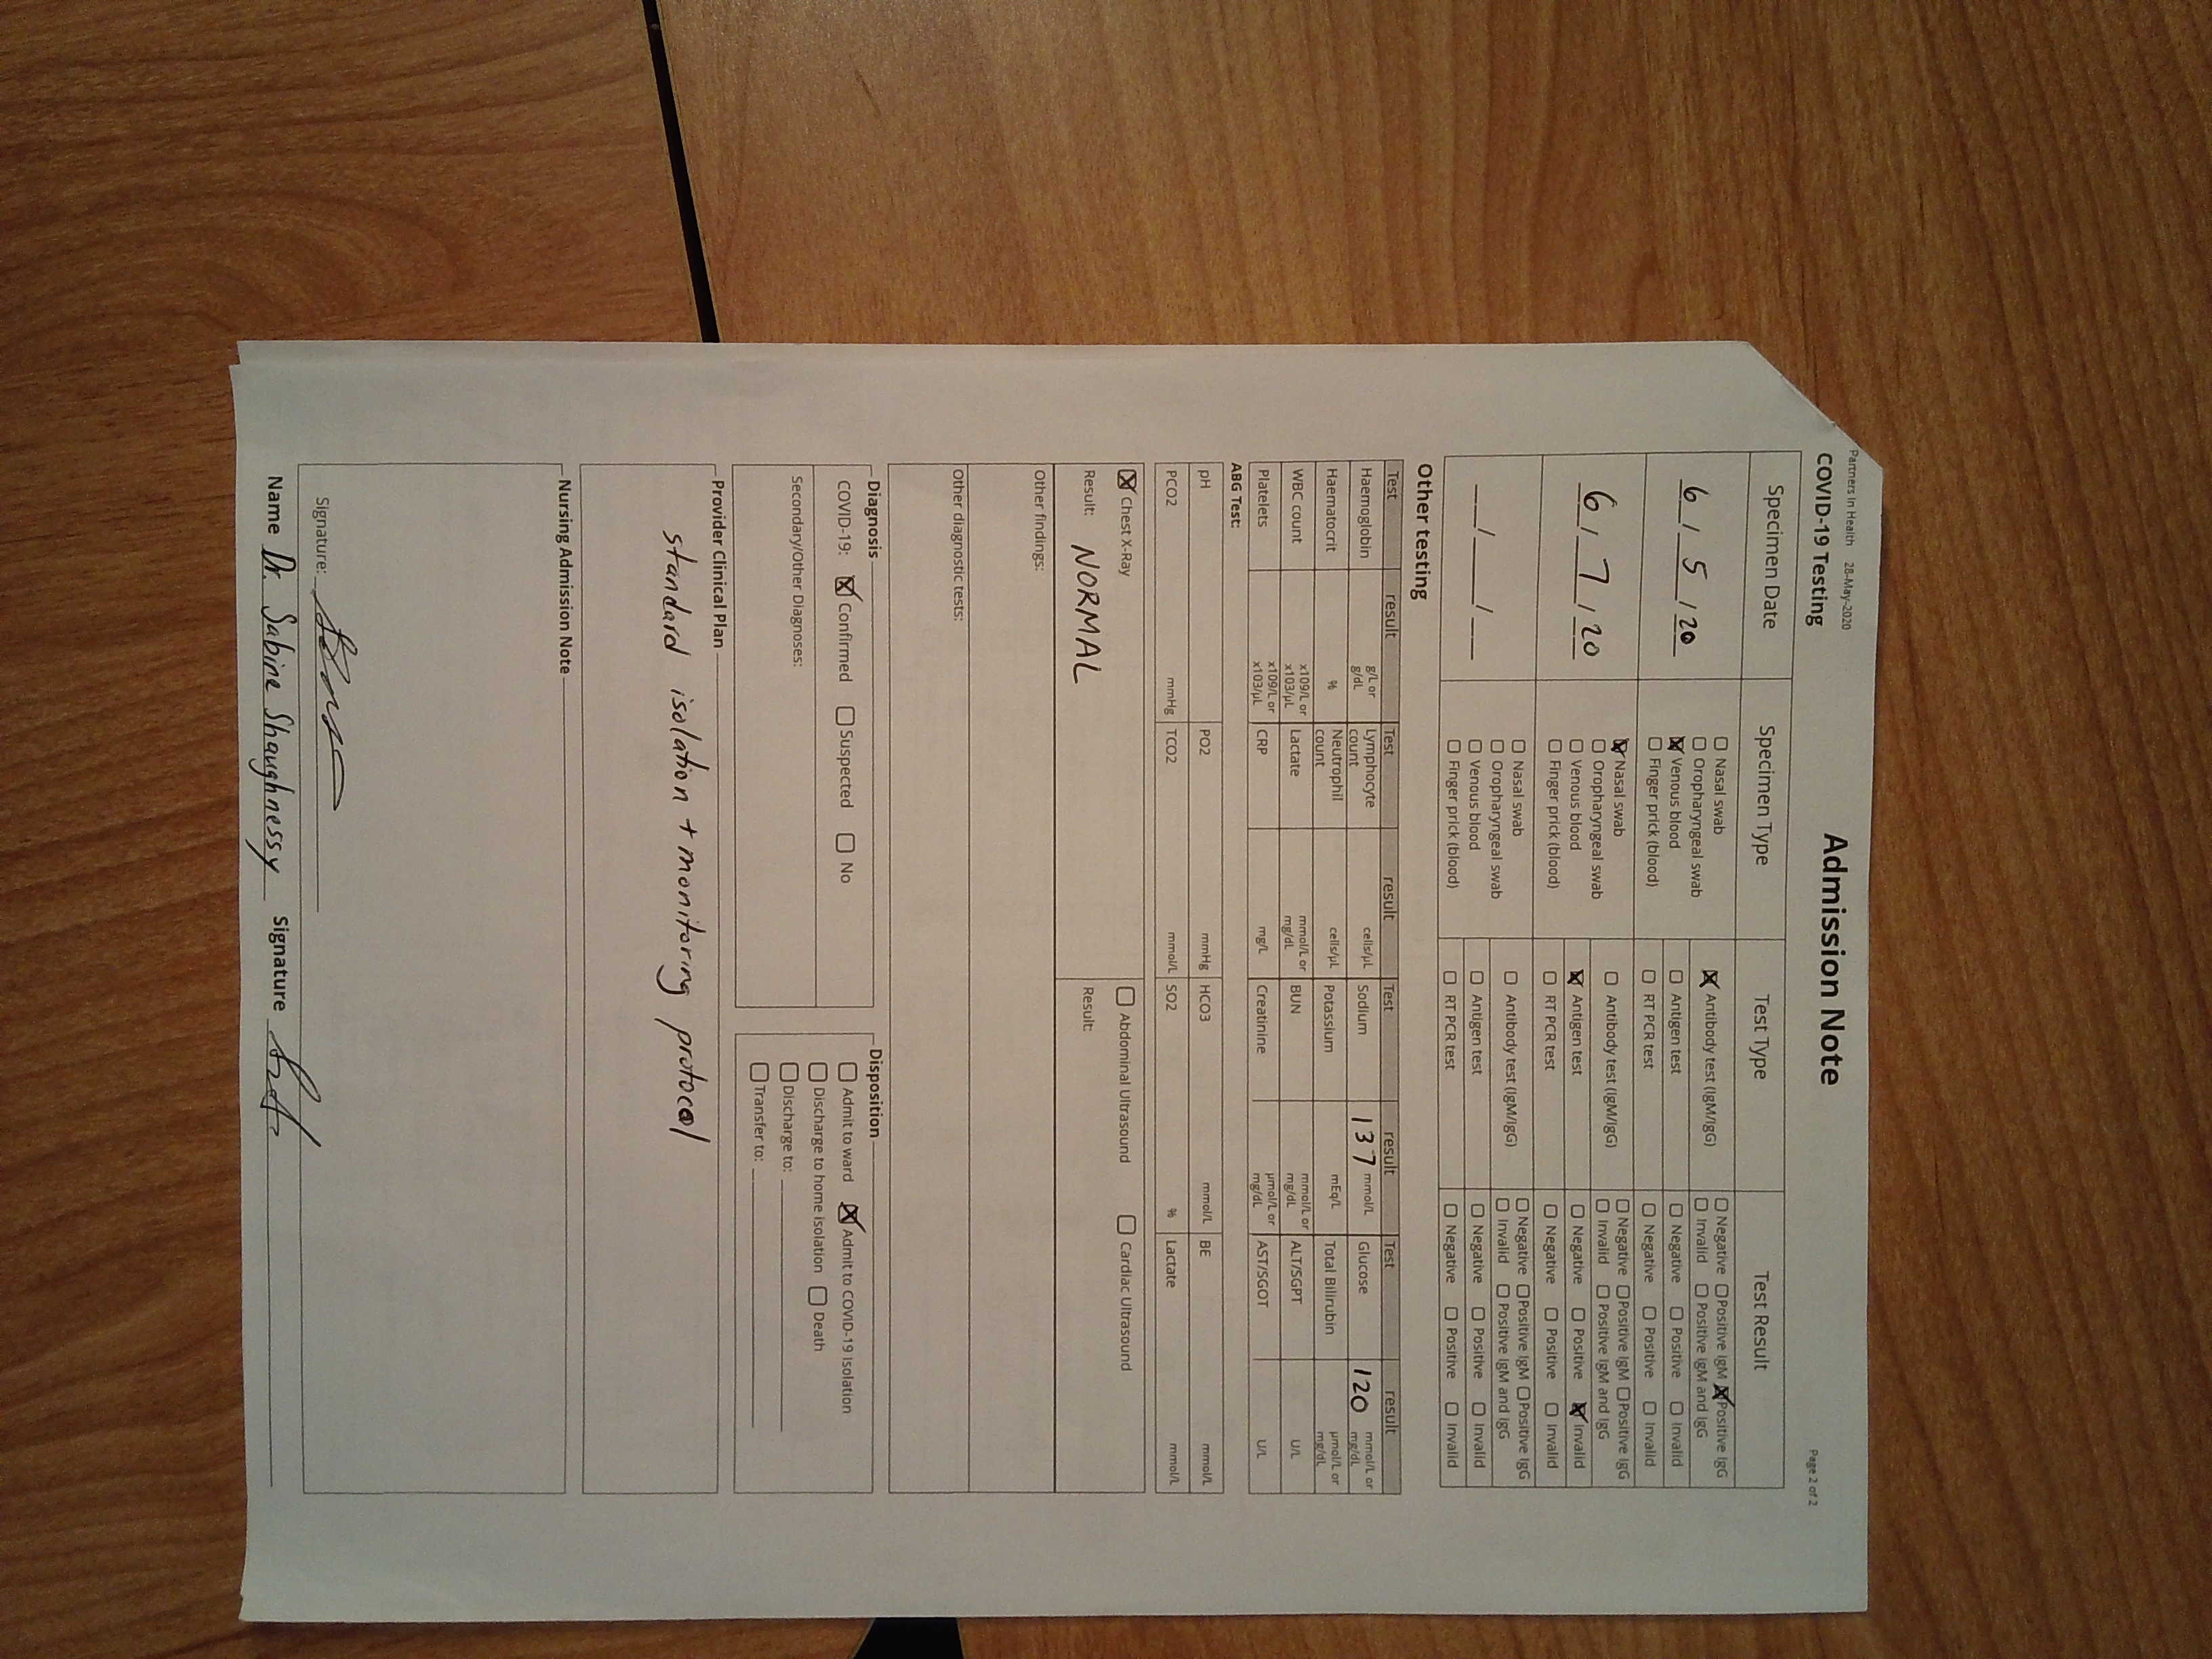 Partners In Health 28-May-2020
Admission Note
Page 2 of 2
COVID-19 Testing
Specimen Date Specimen Type Test Type Test Result
6 / 5 / 20
☐ Nasal swab
☐ Oropharyngeal swab
☒ Venous blood
☐ Finger prick (blood)
☒ Antibody test (IgM/IgG) ☐ Negative ☐ Positive IgM ☒ Positive IgG
☐ Invalid ☐ Positive IgM and IgG
☐ Antigen test ☐ Negative ☐ Positive ☐ Invalid
☐ RT PCR test ☐ Negative ☐ Positive ☐ Invalid
6 / 7 / 20
☒ Nasal swab
☐ Oropharyngeal swab
☐ Venous blood
☐ Finger prick (blood)
☐ Antibody test (IgM/IgG) ☐ Negative ☐ Positive IgM ☐ Positive IgG
☐ Invalid ☐ Positive IgM and IgG
☒ Antigen test ☐ Negative ☐ Positive ☒ Invalid
☐ RT PCR test ☐ Negative ☐ Positive ☐ Invalid
__/__/__
☐ Nasal swab
☐ Oropharyngeal swab
☐ Venous blood
☐ Finger prick (blood)
☐ Antibody test (IgM/IgG) ☐ Negative ☐ Positive IgM ☐ Positive IgG
☐ Invalid ☐ Positive IgM and IgG
☐ Antigen test ☐ Negative ☐ Positive ☐ Invalid
☐ RT PCR test ☐ Negative ☐ Positive ☐ Invalid
Other testing
Test result Test result Test result Test result
Haemoglobin g/L or g/dL Lymphocyte count cells/µL Sodium 137 mmol/L Glucose 120 mmol/L or mg/dL
Haematocrit % Neutrophil count cells/µL Potassium mEq/L Total Bilirubin µmol/L or mg/dL
WBC count x109/L or x103/µL Lactate mmol/L or mg/dL BUN mmol/L or mg/dL ALT/SGPT U/L
Platelets x109/L or x103/µL CRP mg/L Creatinine µmol/L or mg/dL AST/SGOT U/L
ABG Test:
pH PO2 mmHg HCO3 mmol/L BE mmol/L
PCO2 mmHg TCO2 mmol/L SO2 % Lactate mmol/L
☒ Chest X-Ray ☐ Abdominal Ultrasound ☐ Cardiac Ultrasound
Result: NORMAL Result:
Other findings:
Other diagnostic tests:
Diagnosis
COVID-19: ☒ Confirmed ☐ Suspected ☐ No
Secondary/Other Diagnoses:
Disposition
☐ Admit to ward ☒ Admit to COVID-19 Isolation
☐ Discharge to home isolation ☐ Death
☐ Discharge to:
☐ Transfer to:
Provider Clinical Plan
standard isolation + monitoring protocol
Nursing Admission Note
Signature:
Name Dr. Sabine Shaughnessy Signature